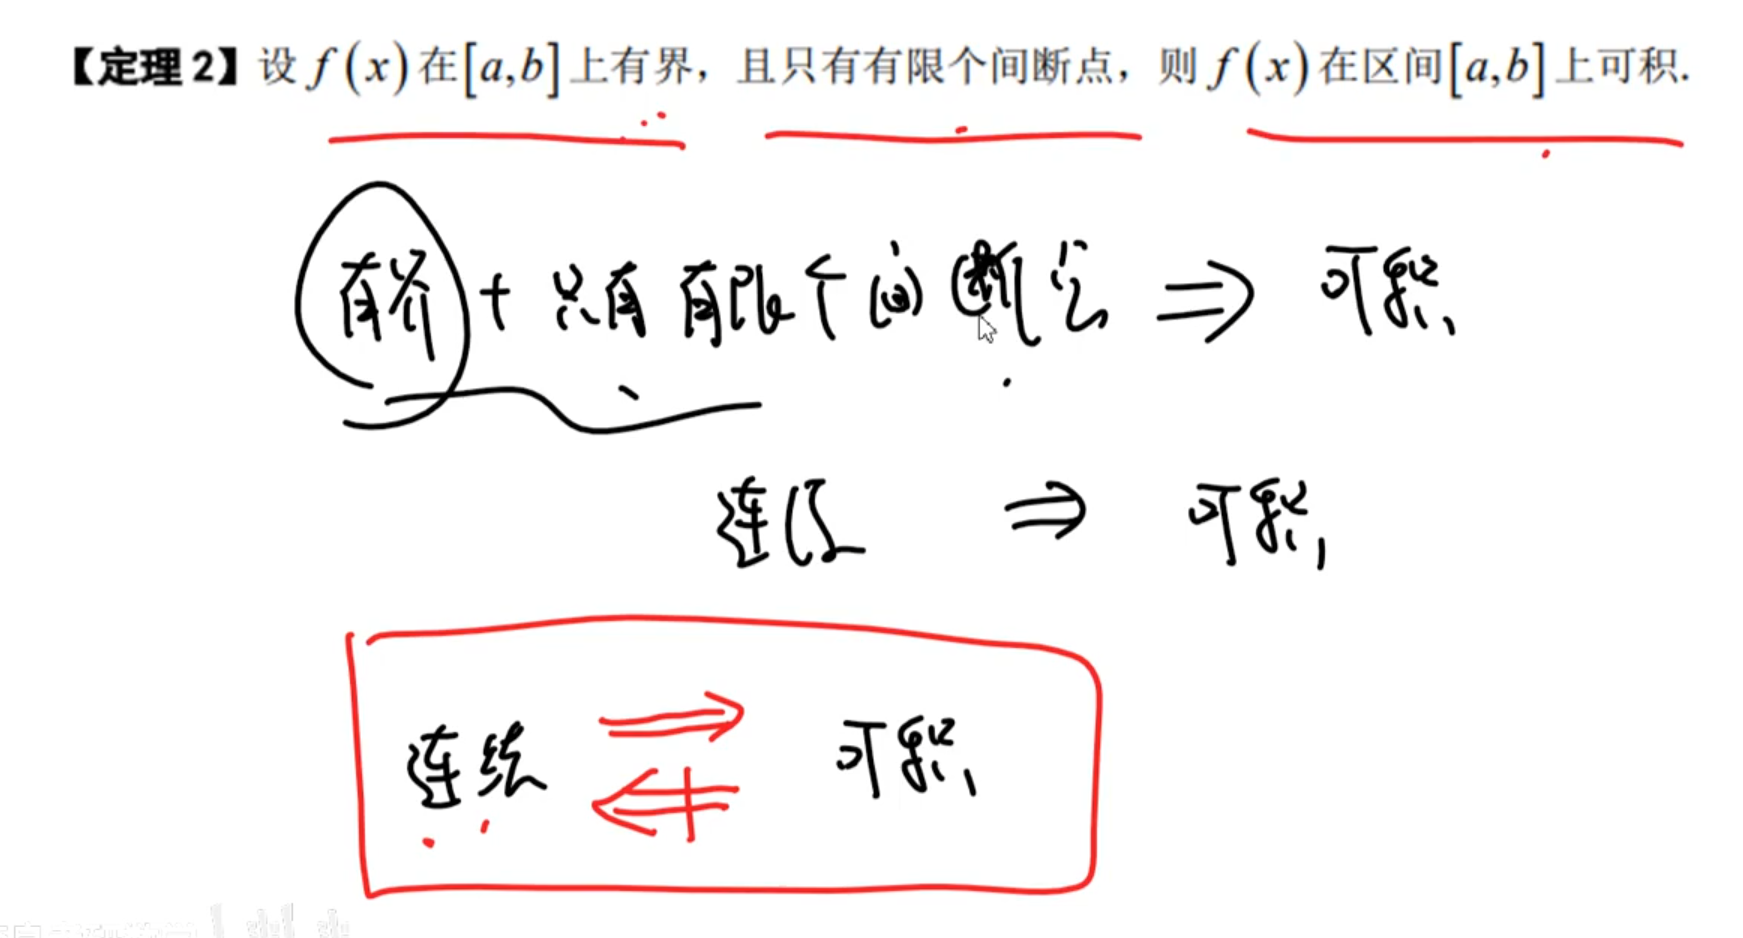 【定理2】设 f(x) 在[a,b]上有界，且只有有限个间断点，则 f(x) 在区间[a,b]上可积.
有界 + 只有有限个间断点 ⇒ 可积
连续 ⇒ 可积
连续 ⇒ 可积